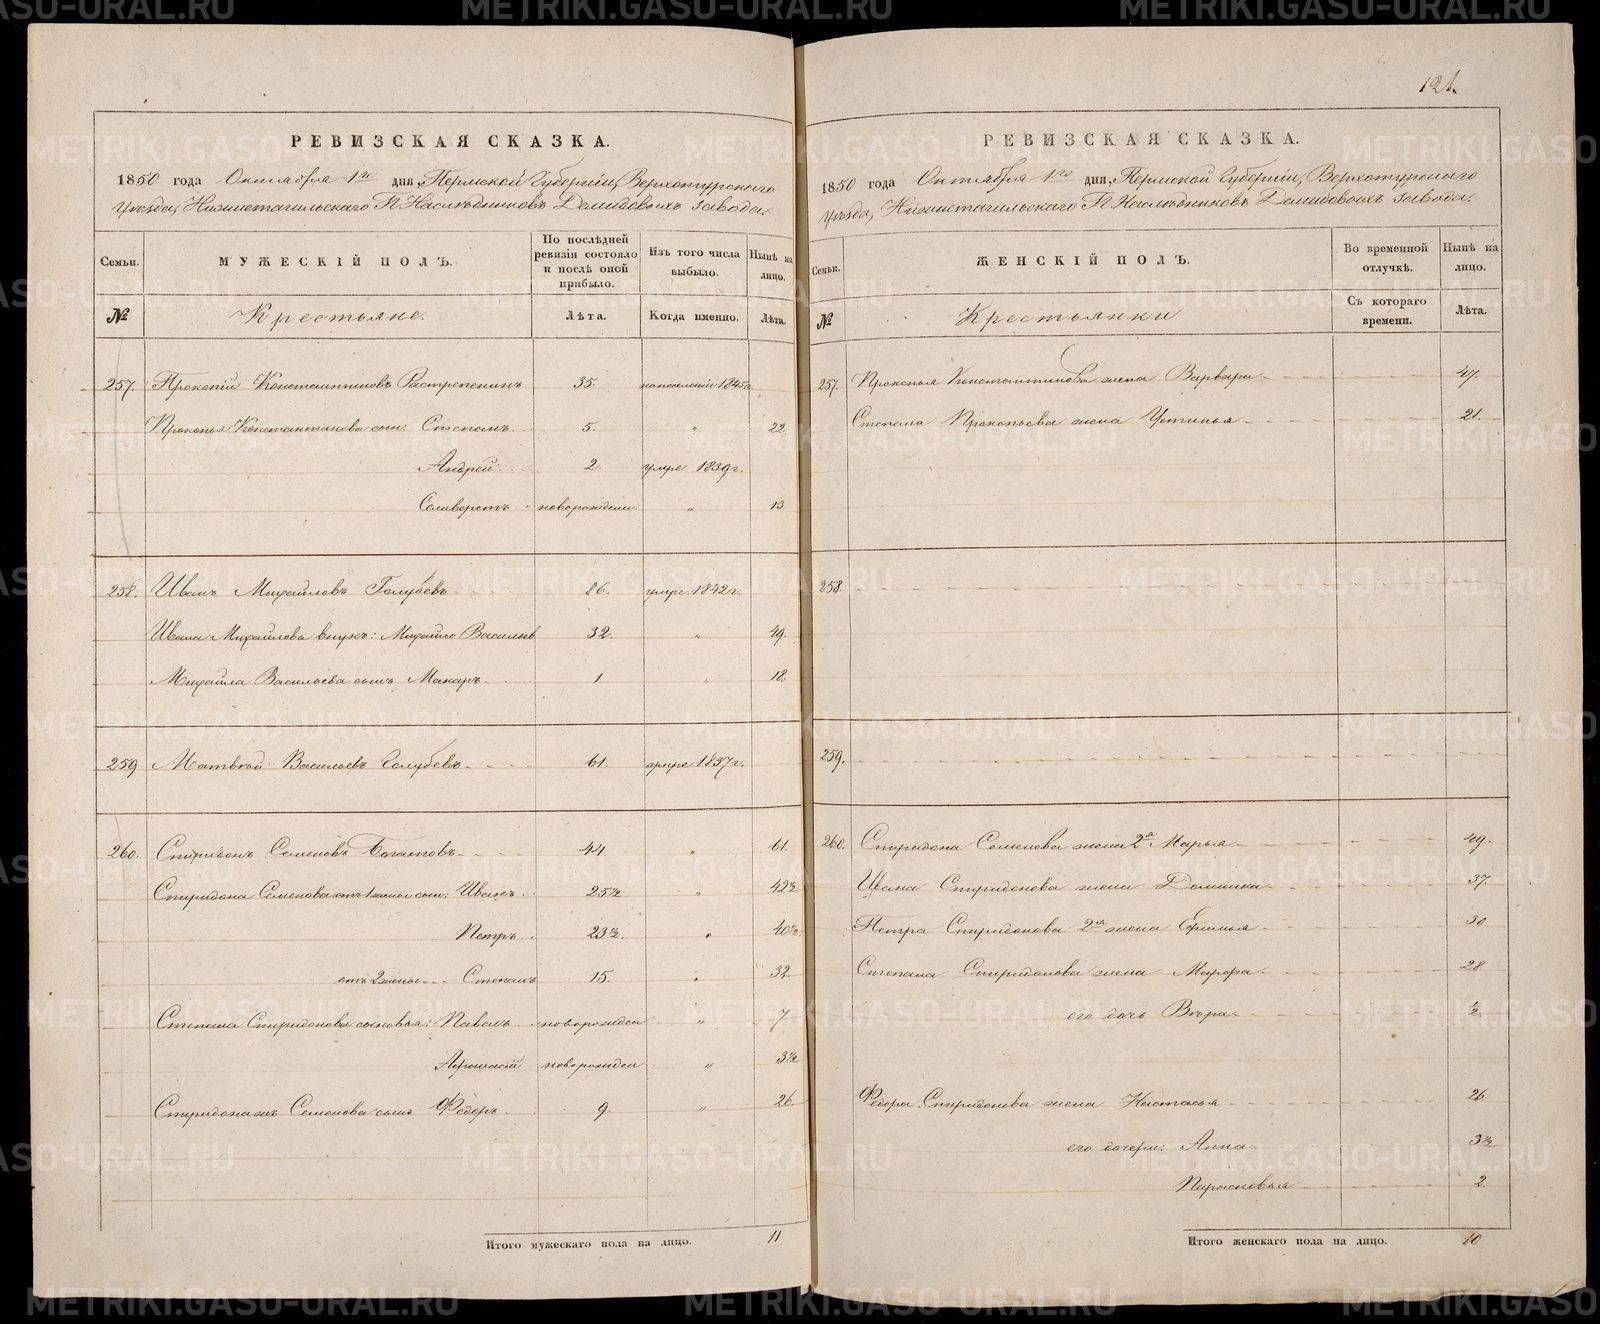 121.
РЕВИЗСКАЯ СКАЗКА.
1850 года Октября 1го дня, Пермской Губернии, Верхотурскаго
Уѣзда, Нижнетагильскаго Г.г. Наслѣдниковъ Демидовыхъ завода.
Семьи. МУЖЕСКІЙ ПОЛЪ. По послѣдней ревизіи состояло и послѣ оной прибыло. Изъ того числа выбыло. Нынѣ на лицо.
№ Крестьяне. Лѣта. Когда именно. Лѣта.
257. Прокопій Константиновъ Растрепенинъ 35. на поселеніи 1845г
Прокопья Константинова сын: Степанъ 5. " 22
Андрей 2. умре 1839г.
Селиверстъ новорожден. " 13
258. Иванъ Михайловъ Голубевъ 86. умре 1842г.
Ивана Михайлова внукъ: Михайло Васильев 32. " 49.
Михайла Васильева сынъ Макаръ 1 " 18.
259 Матвей Васильевъ Голубевъ 61. умре 1837г.
260. Спиридонъ Семеновъ Богатовъ 44. " 61.
Спиридона Семенова отъ 1 жены сын: Иванъ 25½ " 42½
Петръ 23½. " 40½
отъ 2 жены Степанъ 15. " 32.
Степана Спиридонова сыновья: Павелъ новорожден " 7
Афонасій новорожден " 3½
Спиридона Семенова сынъ Федоръ 9. " 26.
Итого мужескаго пола на лицо. 11
РЕВИЗСКАЯ СКАЗКА.
1850 года Октября 1го дня, Пермской Губерніи, Верхотурскаго
Уѣзда, Нижнетагильскаго Г.г. Наслѣдниковъ Демидовыхъ завода.
Семьи. ЖЕНСКІЙ ПОЛЪ. Во временной отлучкѣ. Нынѣ на лицо.
№ Крестьянки Съ котораго времени. Лѣта.
257. Прокопья Константинова жена Варвара 47.
Степана Прокопьева жена Устинья 21.
258.
259.
260. Спиридона Семенова жена 2я Марья 49.
Ивана Спиридонова жена Домника 37.
Петра Спиридонова 2я жена Ефимья 30
Степана Спиридонова жена Марфа 28
его дочь Вѣра ½
Федора Спиридонова жена Настасья 26
его дочери: Анна 3½
Парасковья 2.
Итого женскаго пола на лицо. 10
METRIKI.GASO-URAL.RU